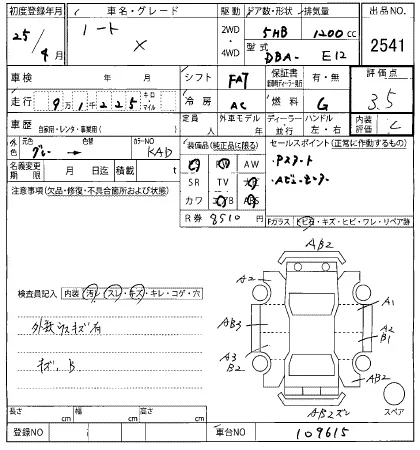 初度登録年月 車名・グレード 駆動 ドア数・形状 排気量 出品NO
25/4月 ノート X 2WD・4WD 5HB 1200cc 2541
型式 DBA- E12
車検 年 月 シフト FAT 保証書 有・無 評価点
走行 9万1千225 キロ・マイル 冷房 AC 燃料 G 3.5
車歴 自家用・レンタ・事業用( ) 定員 人 外車モデル 年 ディーラー・並行 ハンドル 左・右 内装 C
外色 元色 グレー → 色替 カラーNO KAD
装備品(純正品に限る) セールスポイント(正常に作動するもの)
名義変更期限 月 日迄 積載 t
AW
SR TV
カワ
Pスタート
Aビューモニター
注意事項(欠品・修復・不具合箇所および状態)
R券 8510
Fガラス トビ石・キズ・ヒビ・ワレ・リペア跡
検査員記入 内装 汚レ・スレ・キズ・キレ・コゲ・穴
外装ウスキズ有
キズ、B
AB2
A2
A1
AB3
A2
B1
A3
B2
AB2
AB2ズレ
スペア
長さ cm 幅 cm 高さ cm
登録NO 車台NO 109615